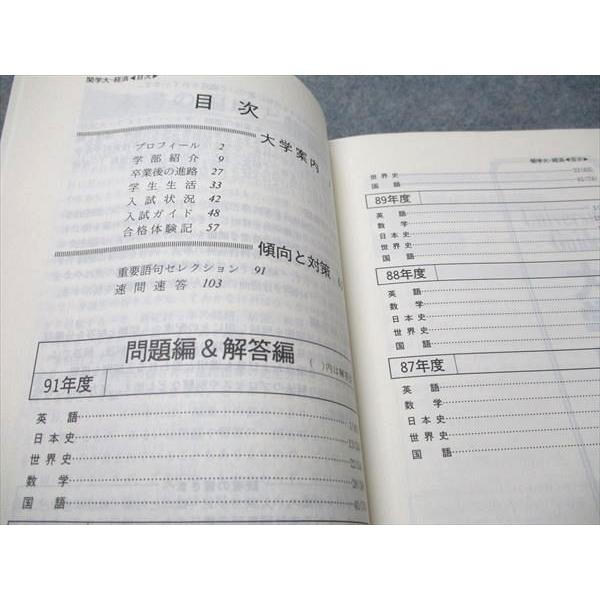 関学大－経済◀目次▶
目次
大学案内
プロフィール 2
学部紹介 9
卒業後の進路 27
学生生活 33
入試状況 42
入試ガイド 48
合格体験記 57
傾向と対策
重要語句セレクション 91
速問速答 103
問題編&解答編
( )内は解答
91年度
英語
日本史
世界史
数学
国語
関学大－経済◀目次▶
世界史
国語
89年度
英語
数学
日本史
世界史
国語
88年度
英語
数学
日本史
世界史
国語
87年度
英語
数学
日本史
世界史
国語